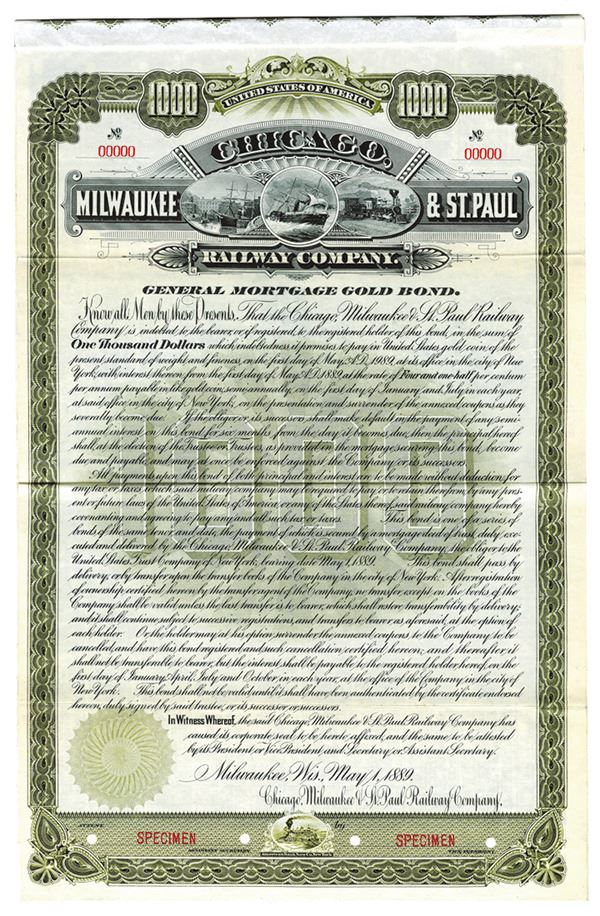 1000 UNITED STATES OF AMERICA 1000
No No
00000 00000
CHICAGO,
MILWAUKEE & ST. PAUL
RAILWAY COMPANY.
GENERAL MORTGAGE GOLD BOND.
Know all Men by these Presents, That the Chicago, Milwaukee & St. Paul Railway
Company is indebted to the bearer, or if registered, to the registered holder of this bond, in the sum of
One Thousand Dollars which indebtedness it promises to pay in United States gold coin of the
present standard of weight and fineness, on the first day of May, A.D. 1989, at its office in the city of New
York, with interest thereon, from the first day of May, A.D. 1889, at the rate of Four and one-half per centum
per annum, payable in like gold coin, semi-annually, on the first day of January and July in each year,
at said office in the city of New York, on the presentation and surrender of the annexed coupons as they
severally become due. If the obligor or its successor shall make default in the payment of any semi-
annual interest on this bond for six months from the day it becomes due, then the principal hereof
shall, at the election of the Trustee or Trustees, as provided in the mortgage securing this bond, become
due and payable, and may at once be enforced against the Company or its successors.
All payments upon this bond of both principal and interest are to be made without deduction for
any tax or taxes which said railway company may be required to pay or to retain therefrom by any pres-
ent or future laws of the United States of America, or any of the States thereof, said railway company hereby
covenanting and agreeing to pay any and all such tax or taxes. This bond is one of a series of
bonds of the same tenor and date, the payment of which is secured by a mortgage deed of trust, duly exe-
cuted and delivered by the Chicago, Milwaukee & St. Paul Railway Company, as obligor to the
United States Trust Company of New York, bearing date May 1, 1889. This bond shall pass by
delivery, or by transfer upon the transfer books of the Company in the city of New York. After registration
of ownership certified hereon by the transfer agent of the Company, no transfer except on the books of the
Company shall be valid unless the last transfer is to bearer, which shall restore transferability by delivery;
and it shall continue subject to successive registrations, and transfers to bearer as aforesaid, at the option of
each holder. Or the holder may at his option, surrender the annexed coupons to the Company to be
cancelled, and have this bond registered and such cancellation certified hereon; and thereafter it
shall not be transferable to bearer, but the interest shall be payable to the registered holder hereof, on the
first day of January, April, July and October, in each year, at the office of the Company in the city of
New York. This bond shall not be valid until it shall have been authenticated by the certificate endorsed
hereon, duly signed by said trustee, or its successor or successors.
In Witness Whereof, the said Chicago, Milwaukee & St. Paul Railway Company has
caused its corporate seal to be hereto affixed, and the same to be attested
by its President or Vice President, and Secretary or Assistant Secretary.
Milwaukee, Wis., May 1, 1889.
Chicago, Milwaukee & St. Paul Railway Company,
ATTEST by
SPECIMEN SPECIMEN
ASSISTANT SECRETARY. VICE PRESIDENT.
1000